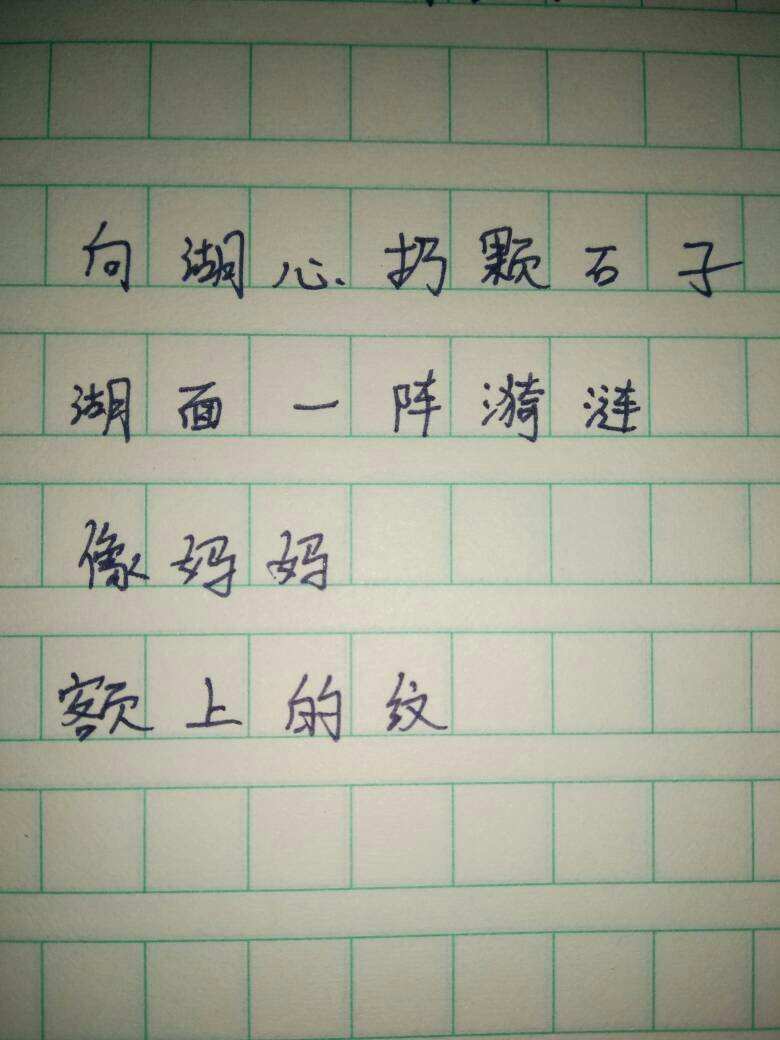 向湖心扔颗石子
湖面一阵漪涟
像妈妈
额上的纹